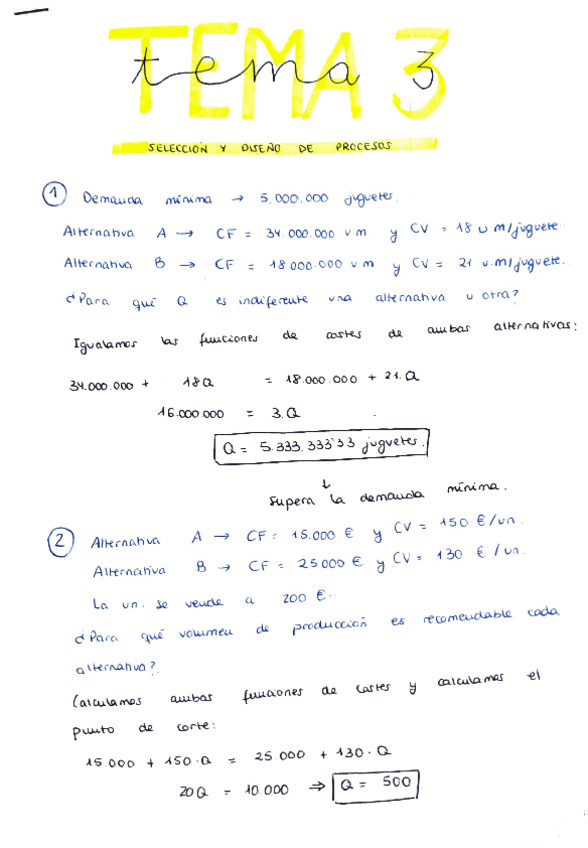 TEMA 3
tema 3
SELECCIÓN Y DISEÑO DE PROCESOS
1 Demanda mínima → 5.000.000 juguetes.
Alternativa A → CF = 34.000.000 u m y CV = 18 u m/juguete
Alternativa B → CF = 18 000.000 u.m y CV = 21 u.m/juguete.
¿Para qué Q es indiferente una alternativa u otra?
Igualamos las funciones de costes de ambas alternativas:
34.000.000 + 18Q = 18.000.000 + 21.Q
16.000.000 = 3.Q
Q = 5.333.333'33 juguetes.
↓
Supera la demanda mínima.
2 Alternativa A → CF = 15.000 € y CV = 150 €/un.
Alternativa B → CF = 25000 € y CV = 130 €/un.
La un. se vende a 200 €.
¿Para qué volumen de producción es recomendable cada
alternativa?
Calculamos ambas funciones de costes y calculamos el
punto de corte:
15.000 + 150·Q = 25 000 + 130·Q
20Q = 10.000 ⇒ Q = 500